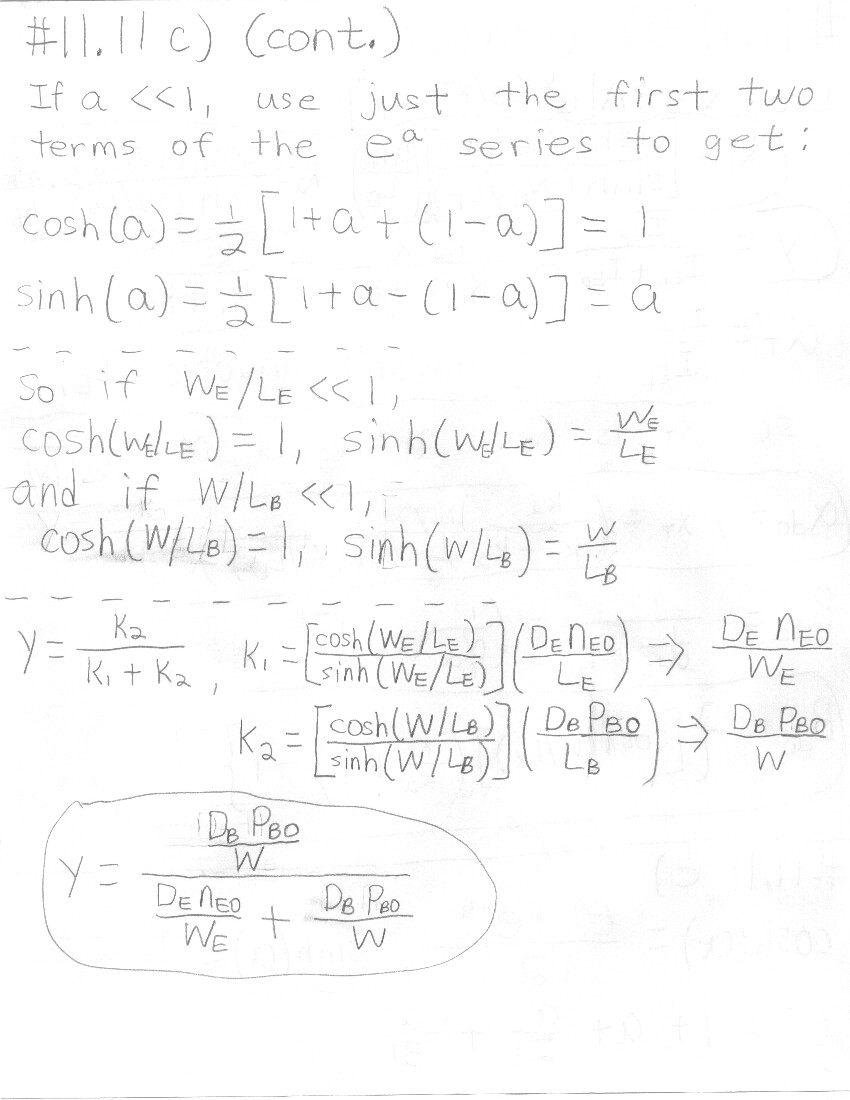 #11.11 c) (cont.)
If a <<1, use just the first two
terms of the eᵃ series to get:
cosh(a) = 1/2 [1+a + (1-a)] = 1
sinh(a) = 1/2 [1+a - (1-a)] = a
So if W_E/L_E << 1,
cosh(W_E/L_E) = 1, sinh(W_E/L_E) = W_E/L_E
and if W/L_B <<1,
cosh(W/L_B) = 1, sinh(W/L_B) = W/L_B
γ = K₂/(K₁ + K₂), K₁ = [cosh(W_E/L_E)/sinh(W_E/L_E)] (D_E n_EO/L_E) ⇒ D_E n_EO/W_E
K₂ = [cosh(W/L_B)/sinh(W/L_B)] (D_B P_BO/L_B) ⇒ D_B P_BO/W
γ = (D_B P_BO/W)/(D_E n_EO/W_E + D_B P_BO/W)